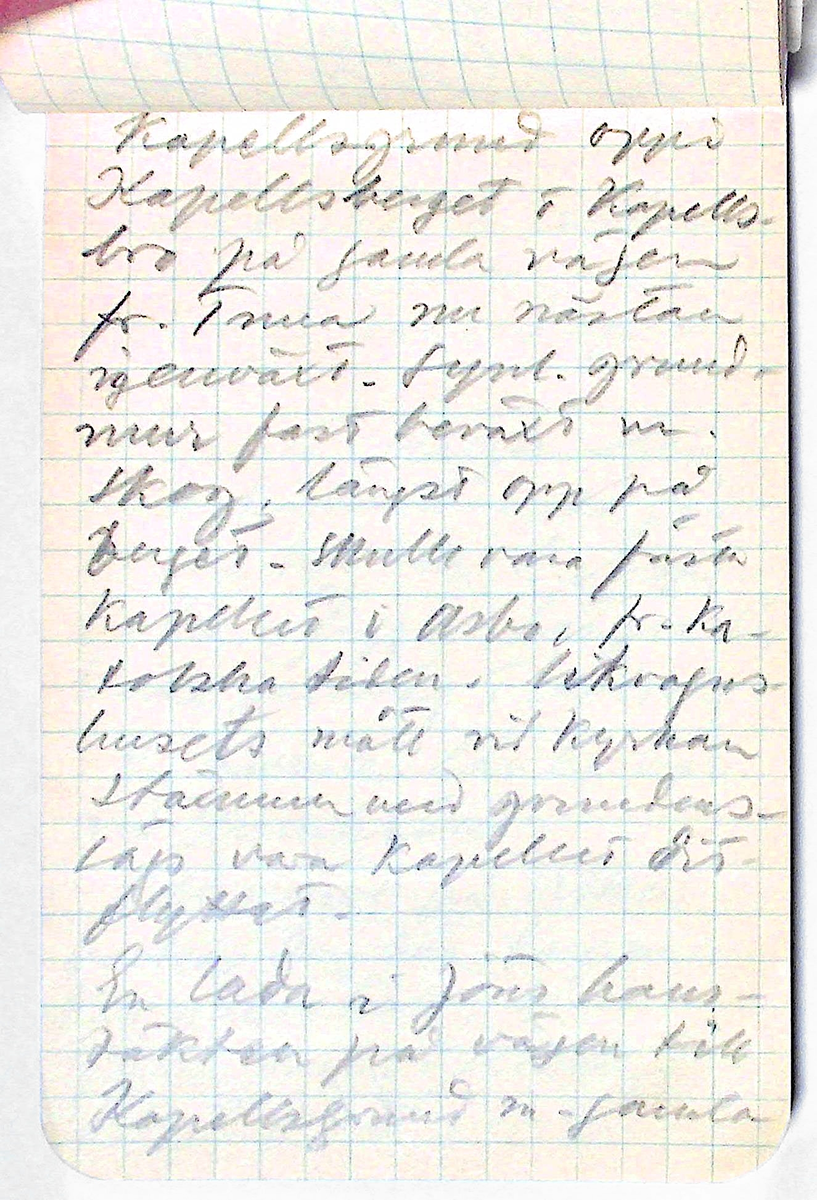 Kapellsgrund oppi
Kapellsberget i Kapells-
bro på gamla vägen
fr. Tmua nu nästan
igenväxt - Synl. grund-
mur fast beväxt m.
skog, längst opp på
berget - skulle vara första
kapellet i Asbo, fr. ka-
tolska tiden. Likvagns-
husets mått vid Kyrkan
stämmer med grundens -
lägs vara kapellet dit-
flyttat -
En lada i Jöns hans-
täkten på vägen till
Kapellsgrund m - gamla